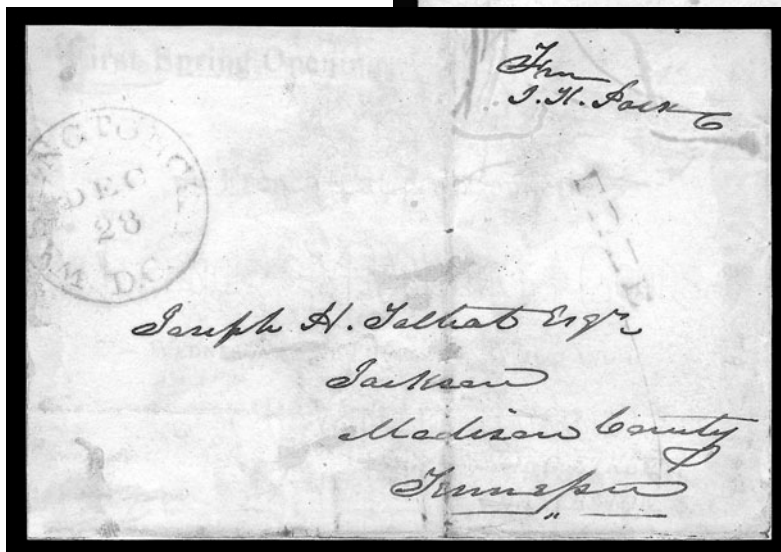 First Spring Opening
J. K. Polk
WASHINGTON CITY
DEC
28
D.C.
FREE
Joseph H. Talbot Esqr
Jackson
Madison County
Tennessee